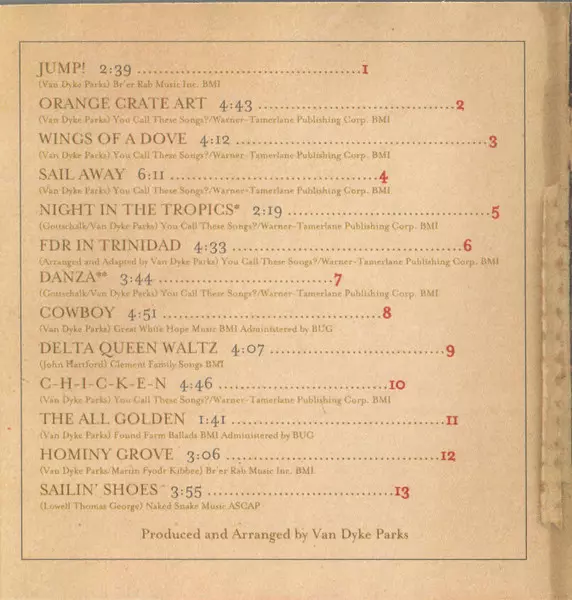 JUMP! 2:39 ........................................ 1
(Van Dyke Parks) Br'er Rab Music Inc. BMI
ORANGE CRATE ART 4:43 ................................... 2
(Van Dyke Parks) You Call These Songs?/Warner-Tamerlane Publishing Corp. BMI
WINGS OF A DOVE 4:12 ............................................. 3
(Van Dyke Parks) You Call These Songs?/Warner-Tamerlane Publishing Corp. BMI
SAIL AWAY 6:11 ..................................... 4
(Van Dyke Parks) You Call These Songs?/Warner-Tamerlane Publishing Corp. BMI
NIGHT IN THE TROPICS* 2:19 .................................... 5
(Gottschalk/Van Dyke Parks) You Call These Songs?/Warner-Tamerlane Publishing Corp. BMI
FDR IN TRINIDAD 4:33 ......................................... 6
(Arranged and Adapted by Van Dyke Parks) You Call These Songs?/Warner-Tamerlane Publishing Corp. BMI
DANZA** 3:44 ............................... 7
(Gottschalk/Van Dyke Parks) You Call These Songs?/Warner-Tamerlane Publishing Corp. BMI
COWBOY 4:51 ........................................ 8
(Van Dyke Parks) Great White Hope Music BMI Administered by BUG
DELTA QUEEN WALTZ 4:07 ............................... 9
(John Hartford) Clement Family Songs BMI
C-H-I-C-K-E-N 4:46 ............................... 10
(Van Dyke Parks) You Call These Songs?/Warner-Tamerlane Publishing Corp. BMI
THE ALL GOLDEN 1:41 ....................................... 11
(Van Dyke Parks) Found Farm Ballads BMI Administered by BUG
HOMINY GROVE 3:06 ........................................... 12
(Van Dyke Parks/Martin Fyodr Kibbee) Br'er Rab Music Inc. BMI
SAILIN' SHOES 3:55 ................................. 13
(Lowell Thomas George) Naked Snake Music ASCAP
Produced and Arranged by Van Dyke Parks